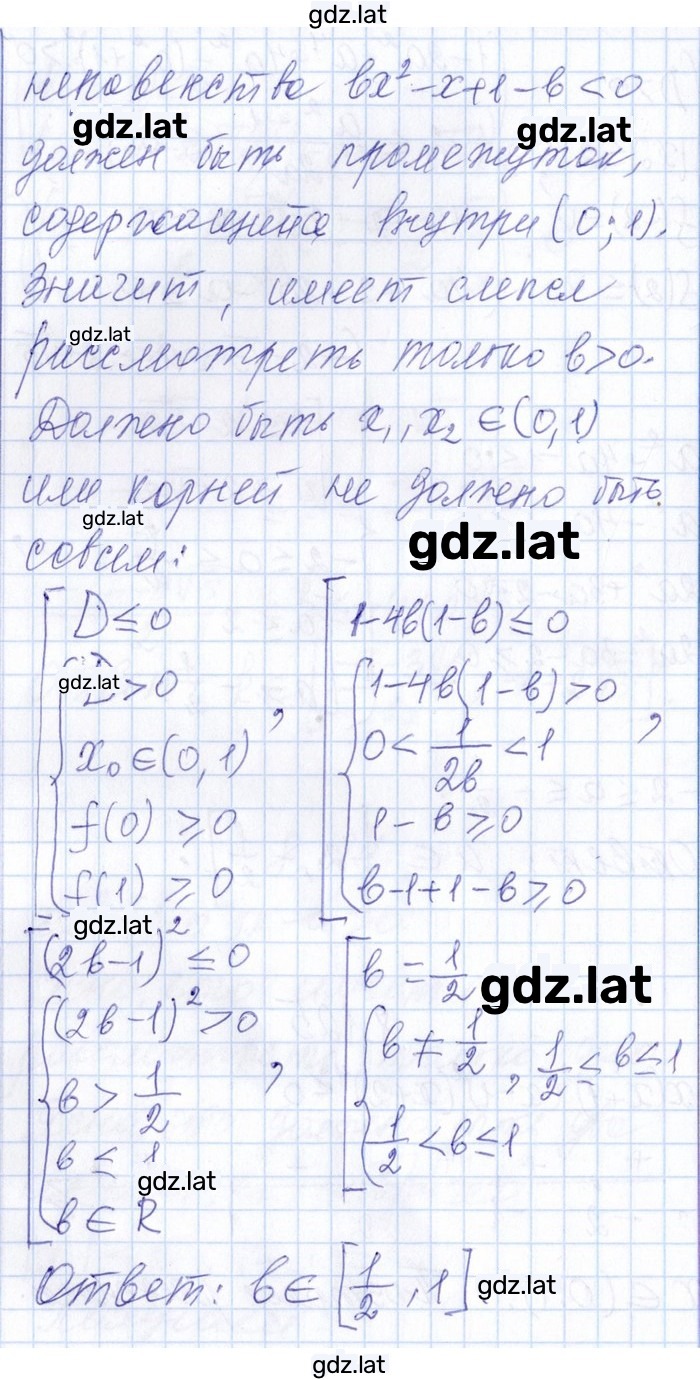 gdz.lat
неравенства bx² - x + 1 - b < 0
gdz.lat gdz.lat
должен быть промежуток,
содержащийся внутри (0; 1).
Значит, имеет смысл
gdz.lat
рассмотреть только b > 0.
Должно быть x₁, x₂ ∈ (0, 1)
или корней не должно быть
gdz.lat
совсем:
gdz.lat
[ D ≤ 0 [ 1 - 4b(1 - b) ≤ 0
gdz.lat
{ D > 0 , { 1 - 4b(1 - b) > 0 ,
x₀ ∈ (0, 1) 0 < 1/2b < 1
f(0) ≥ 0 1 - b ≥ 0
f(1) ≥ 0 b - 1 + 1 - b ≥ 0
gdz.lat
[ (2b - 1)² ≤ 0 [ b = 1/2
gdz.lat
{ (2b - 1)² > 0 , { b ≠ 1/2 , 1/2 ≤ b ≤ 1
b > 1/2 1/2 < b ≤ 1
b ≤ 1
gdz.lat
b ∈ R
Ответ: b ∈ [1/2, 1]
gdz.lat
gdz.lat